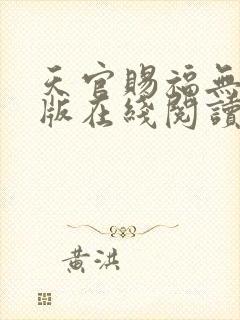 天官賜福無
版在綫閱讀
黃洪